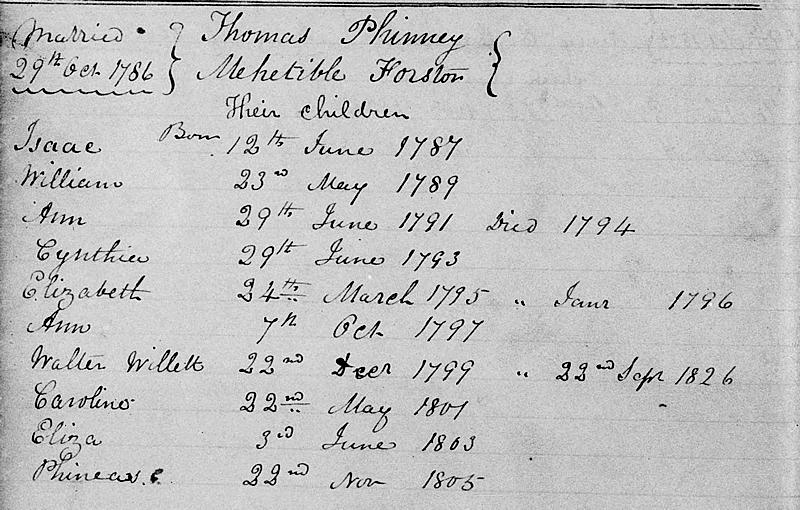 Married Thomas Phinney
29th Oct 1786 Mehetible Forston
Their children
Isaac Born 12th June 1787
William 23rd May 1789
Ann 29th June 1791 Died 1794
Cynthia 29th June 1793
Elizabeth 24th March 1795 " Janr 1796
Ann 7th Oct 1797
Walter Willett 22nd Decr 1799 " 22nd Sepr 1826
Caroline 22nd May 1801
Eliza 3rd June 1803
Phineas. 22nd Nov 1805